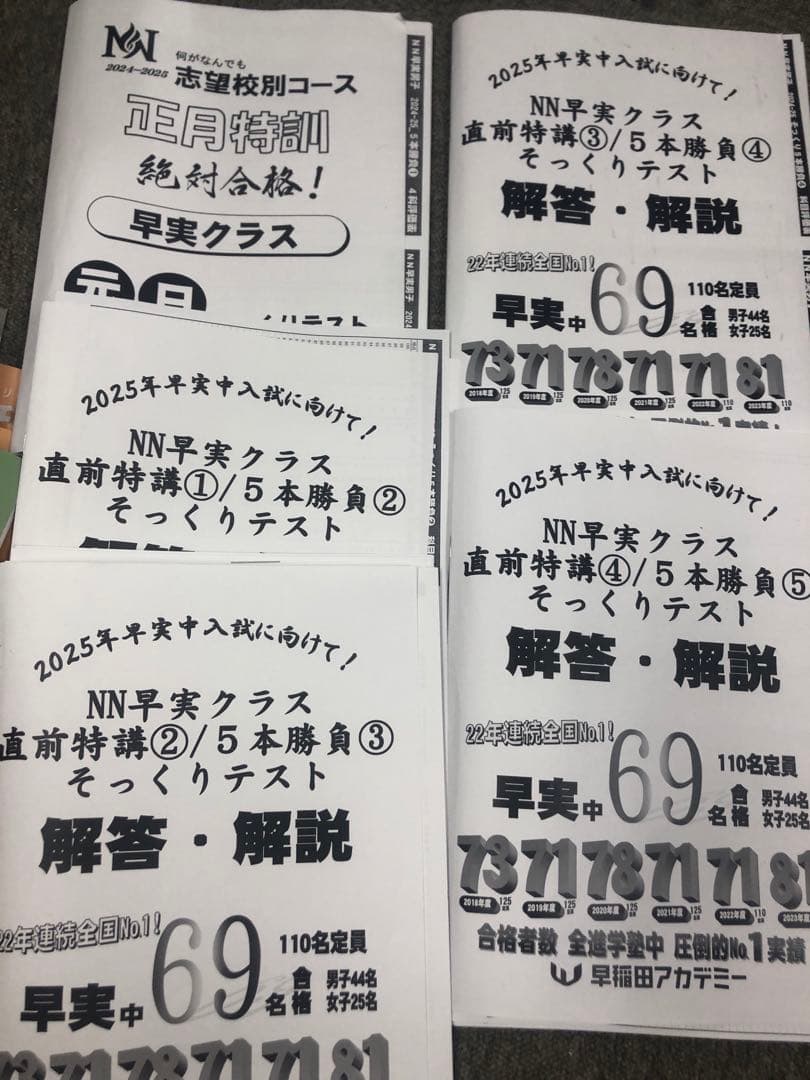 NN
2024-2025
何がなんでも
志望校別コース
正月特訓
絶対合格！
早実クラス
元日
くりテスト
NN早実男子 2024-25 5本勝負❶ 4科評価表
NN早実男子 2024
2025年早実中入試に向けて！
NN早実クラス
直前特講③/5本勝負④
そっくりテスト
解答・解説
22年連続全国No.1！
早実中 69名 合格
110名定員
男子44名
女子25名
73 71 78 71 71 81
2018年度 2019年度 2020年度 2021年度 2022年度 2023年度
2025年早実中入試に向けて！
NN早実クラス
直前特講①/5本勝負②
そっくりテスト
2025年早実中入試に向けて！
NN早実クラス
直前特講④/5本勝負⑤
そっくりテスト
解答・解説
22年連続全国No.1！
早実中 69名 合格
110名定員
男子44名
女子25名
73 71 78 71 71 81
2018年度 2019年度 2020年度 2021年度 2022年度 2023年度
合格者数 全進学塾中 圧倒的No.1実績
早稲田アカデミー
2025年早実中入試に向けて！
NN早実クラス
直前特講②/5本勝負③
そっくりテスト
解答・解説
22年連続全国No.1！
早実中 69名 合格
110名定員
男子44名
女子25名
73 71 78 71 71 81